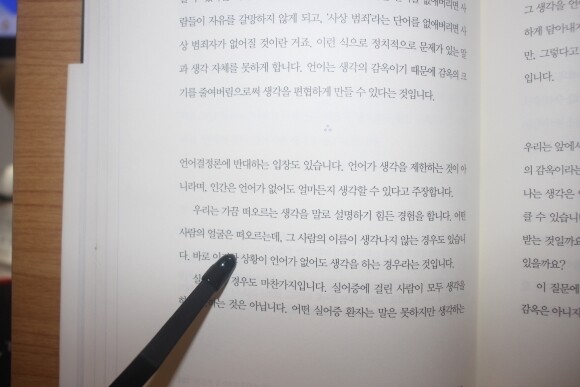 람들이 자유를 갈망하지 않게 되고, '사상 범죄'라는 단어를 없애버리면 사
상 범죄자가 없어질 것이란 거죠. 이런 식으로 정치적으로 문제가 있는 말
과 생각 자체를 못하게 합니다. 언어는 생각의 감옥이기 때문에 감옥의 크
기를 줄여버림으로써 생각을 편협하게 만들 수 있다는 것입니다.
언어결정론에 반대하는 입장도 있습니다. 언어가 생각을 제한하는 것이 아
니라며, 인간은 언어가 없어도 얼마든지 생각할 수 있다고 주장합니다.
우리는 가끔 떠오르는 생각을 말로 설명하기 힘든 경험을 합니다. 어떤
사람의 얼굴은 떠오르는데, 그 사람의 이름이 생각나지 않는 경우도 있습니
다. 바로 상황이 언어가 없어도 생각을 하는 경우라는 것입니다.
경우도 마찬가지입니다. 실어증에 걸린 사람이 모두 생각을
는 것은 아닙니다. 어떤 실어증 환자는 말은 못하지만 생각하는
그 생각을 언
하게 담아내지
만, 그렇다고
입니다.
우리는 앞에서
의 감옥이라는
나는 생각은 언
클 수 있습니
받는 것일까요
있을까요?
이 질문에
감옥은 아니지